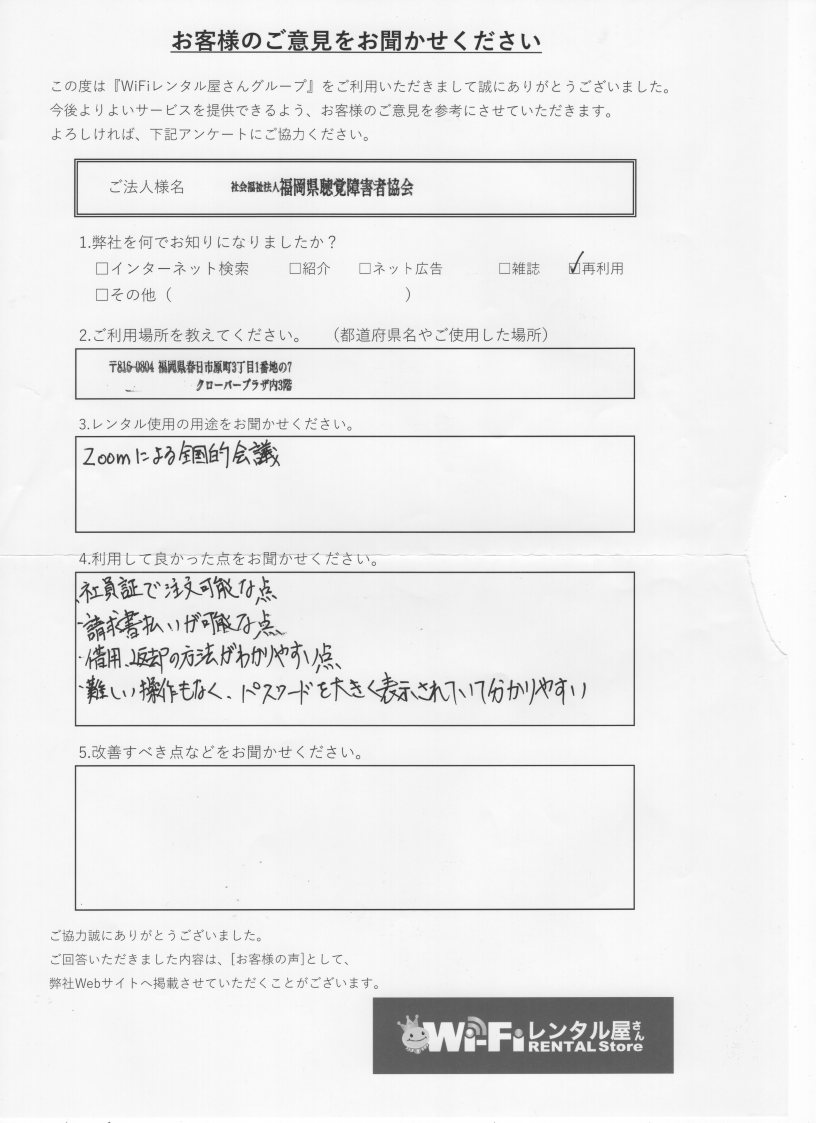 お客様のご意見をお聞かせください
この度は『WiFiレンタル屋さんグループ』をご利用いただきまして誠にありがとうございました。
今後よりよいサービスを提供できるよう、お客様のご意見を参考にさせていただきます。
よろしければ、下記アンケートにご協力ください。
ご法人様名 社会福祉法人福岡県聴覚障害者協会
1.弊社を何でお知りになりましたか？
□インターネット検索 □紹介 □ネット広告 □雑誌 ☑再利用
□その他（ ）
2.ご利用場所を教えてください。 （都道府県名やご使用した場所）
〒816-0804 福岡県春日市原町3丁目1番地の7
クローバープラザ内3階
3.レンタル使用の用途をお聞かせください。
Zoomによる全国的会議
4.利用して良かった点をお聞かせください。
・社員証で注文可能な点
・請求書払いが可能な点
・借用、返却の方法がわかりやすい点、
・難しい操作もなく、パスワードを大きく表示されていて分かりやすい
5.改善すべき点などをお聞かせください。
ご協力誠にありがとうございました。
ご回答いただきました内容は、[お客様の声]として、
弊社Webサイトへ掲載させていただくことがございます。
Wi-Fiレンタル屋さん
RENTAL Store